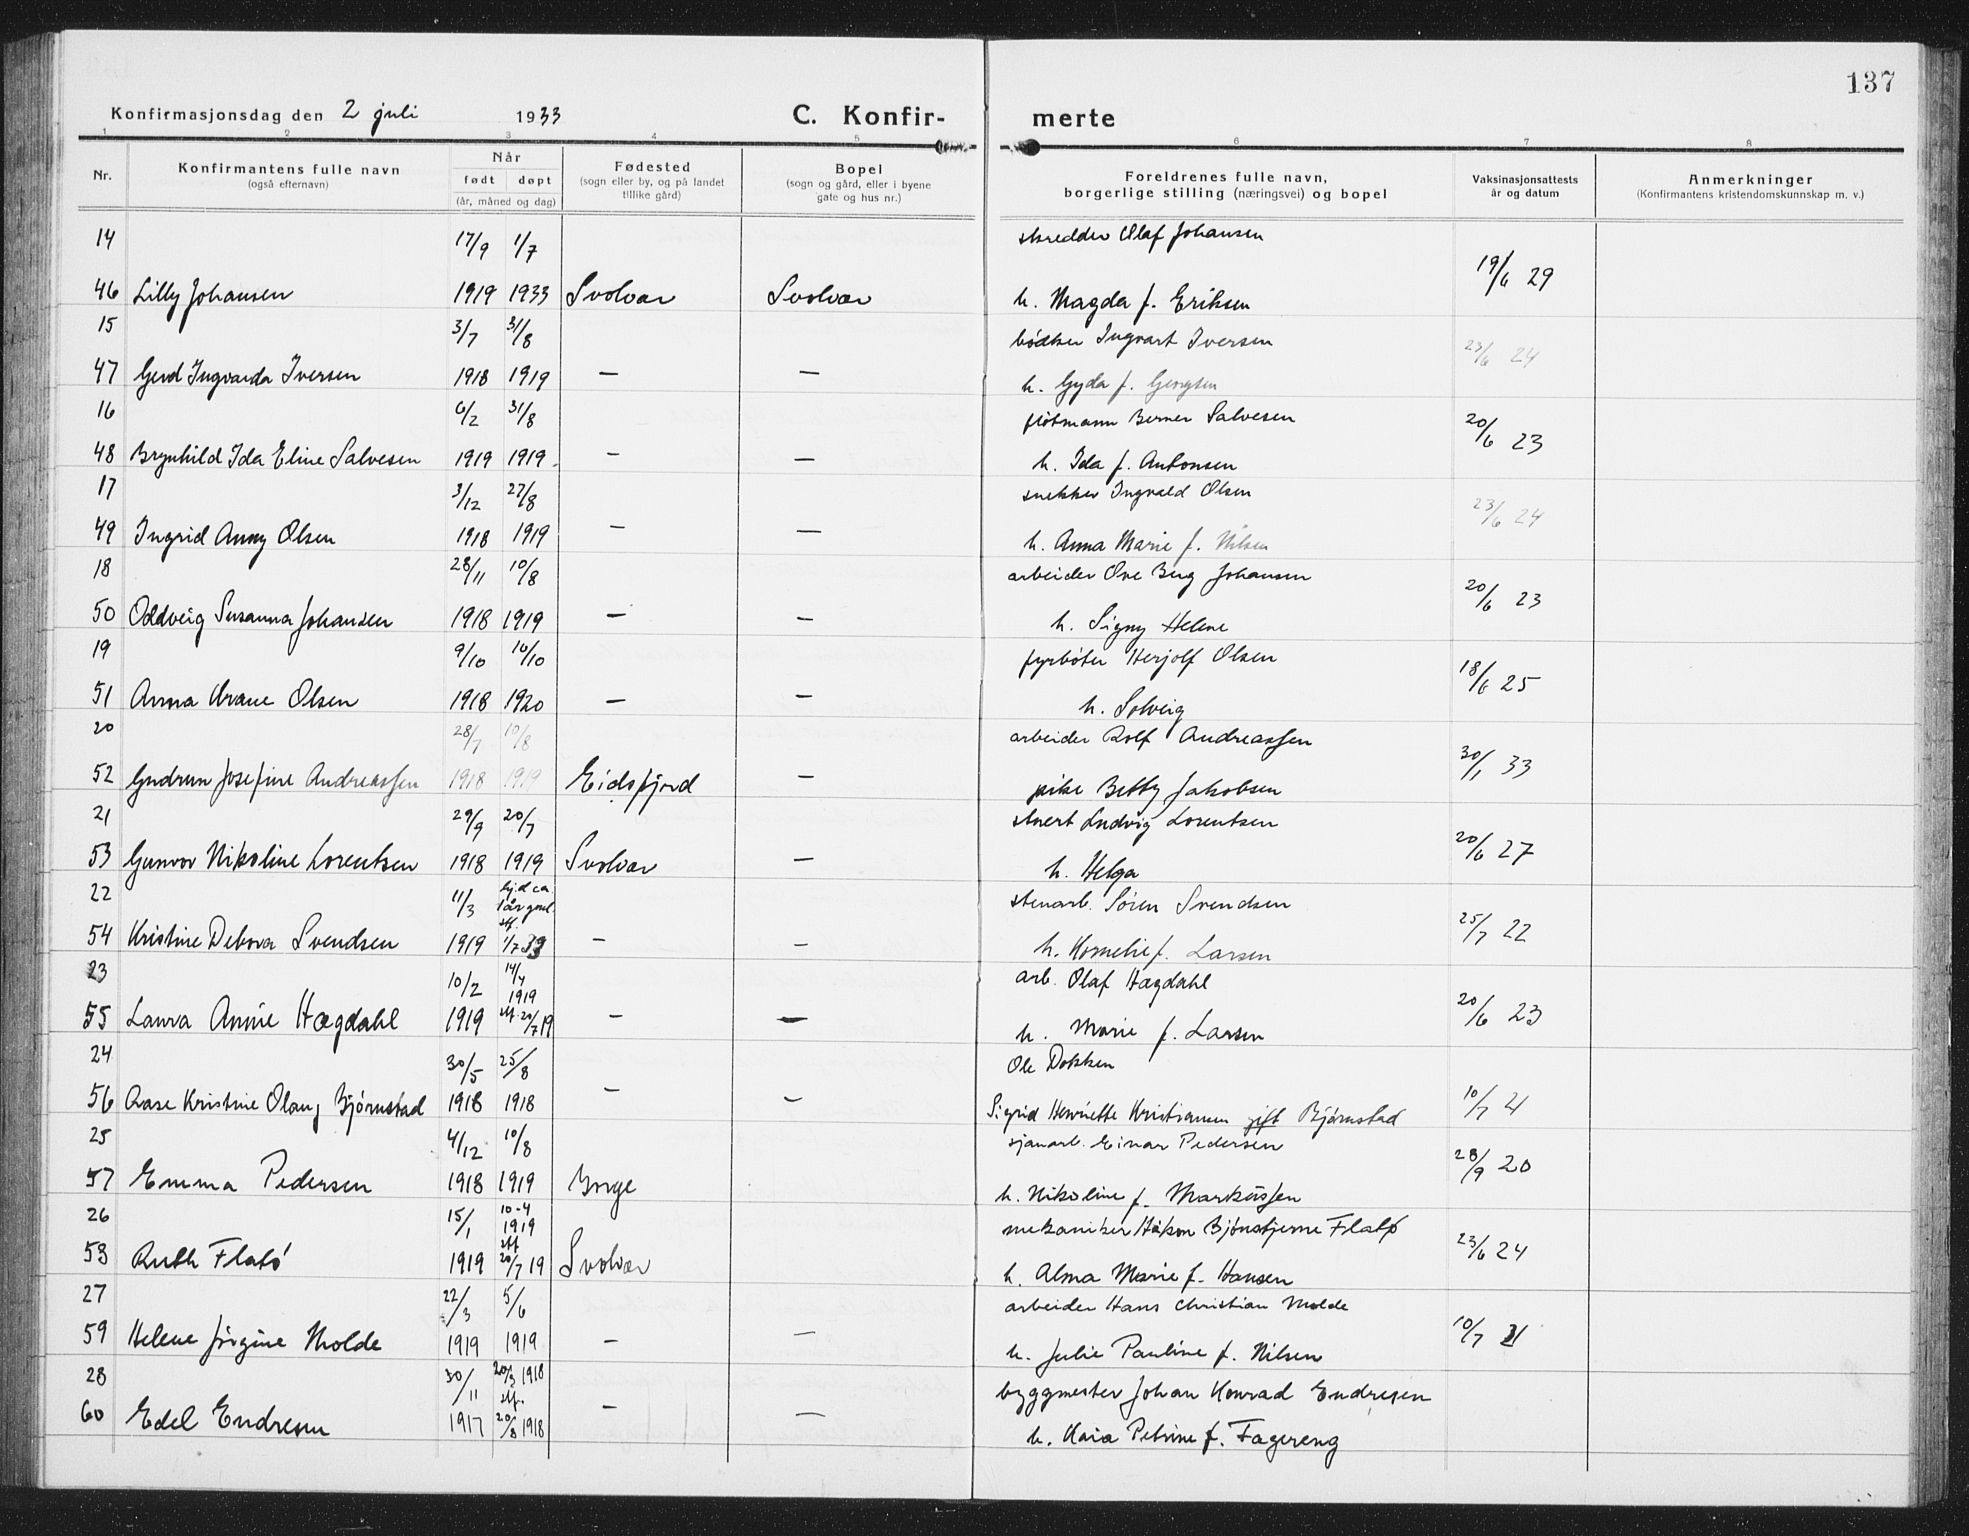 137
Konfirmasjonsdag den 2 juli 1933 C. Konfir- merte
1 2 3 4 5 6 7 8
Nr. Konfirmantens fulle navn (også efternavn) Når født døpt (år, måned og dag) Fødested (sogn eller by, og på landet tillike gård) Bopel (sogn og gård, eller i byene gate og hus nr.) Foreldrenes fulle navn, borgerlige stilling (næringsvei) og bopel Vaksinasjonsattests år og datum Anmerkninger (Konfirmantens kristendomskunnskap m. v.)
14 17/9 1/7 skredder Olaf Johansen
46 Lilly Johansen 1919 1933 Svolvær Svolvær h. Magda f. Eriksen 19/6 29
15 3/7 31/8 bødker Ingvart Iversen
47 Gerd Ingvarda Iversen 1918 1919 — — h. Gyda f. Georgsen 23/6 24
16 6/2 31/8 fløtmann Berner Salvesen
48 Brynhild Ida Eline Salvesen 1919 1919 — — h. Ida f. Antonsen 20/6 23
17 3/12 27/8 snekker Ingvald Olsen
49 Ingrid Anny Olsen 1918 1919 — — h. Anna Marie f. Nilsen 23/6 24
18 28/11 10/8 arbeider Ove Berg Johansen
50 Oddveig Susanna Johansen 1918 1919 — — h. Signy Helene 20/6 23
19 9/10 10/10 fyrbøter Herjolf Olsen
51 Anna Krane Olsen 1918 1920 — — h. Solveig 18/6 25
20 28/7 10/8 arbeider Rolf Andreassen
52 Gudrun Josefine Andreassen 1918 1919 Eidsfjord — pike Betty Jakobsen 30/1 33
21 29/9 20/7 stuert Ludvig Lorentsen
53 Gunvor Nikoline Lorentsen 1918 1919 Svolvær — h. Helga 20/6 27
22 11/3 hj.d ca. 1 år gml. stenarb. Søren Svendsen
54 Kristine Debora Svendsen 1919 stf. 1/7 33 — — h. Kornelie f. Larsen 25/7 22
23 10/2 14/4 1919 arb. Olaf Hagdahl
55 Laura Annie Hagdahl 1919 stf. 20/7 19 — — h. Marie f. Larsen 20/6 23
24 30/5 25/8 Ole Dokken
56 Aase Kristine Olaug Bjørnstad 1918 1918 — — Sigrid Henriette Kristiansen gift Bjørnstad 10/7 21
25 4/12 10/8 sjauarb. Einar Pedersen
57 Emma Pedersen 1918 1919 Borge h. Nikoline f. Markussen 28/9 20
26 15/1 10-4 1919 mekaniker Håkon Bjønstjerne Flatø
58 Ruth Flatø 1919 stf. 20/7 19 Svolvær h. Alma Marie f. Hansen 23/6 24
27 22/3 5/6 arbeider Hans Christian Molde
59 Helene Jørgine Molde 1919 1919 — — h. Julie Pauline f. Nilsen 10/7 21
28 30/11 20/3 1918 byggmester Johan Konrad Endresen
60 Edel Endresen 1917 stf. 20/8 1918 — — h. Kaia Petrine f. Fagereng